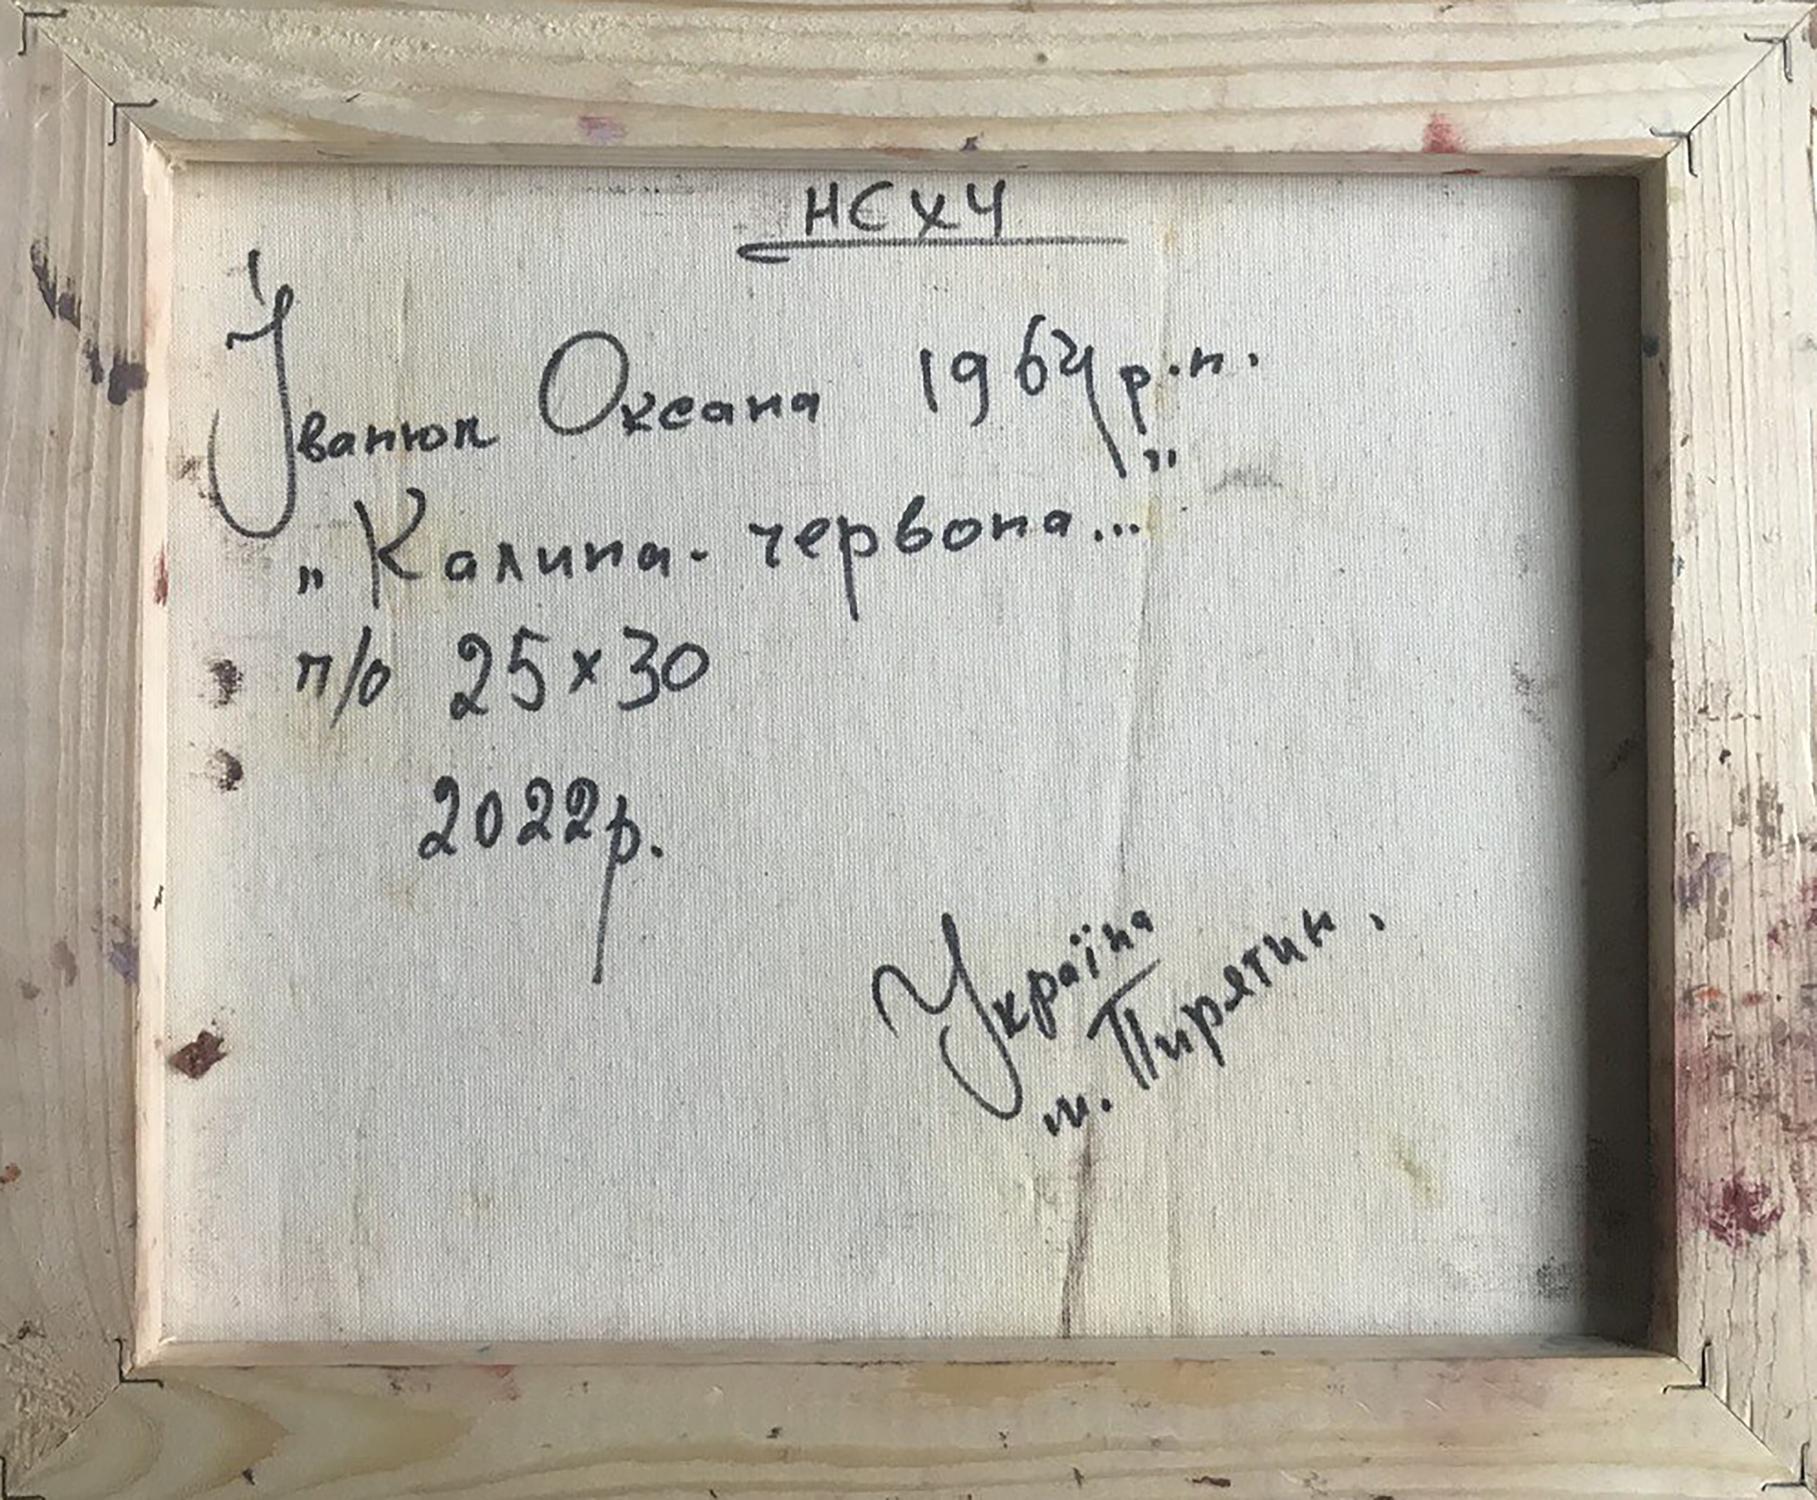 НСХУ
Іванюк Оксана 1964 р.н.
„Калина-червона..."
п/о 25×30
2022р.
Україна
м. Пирятин.